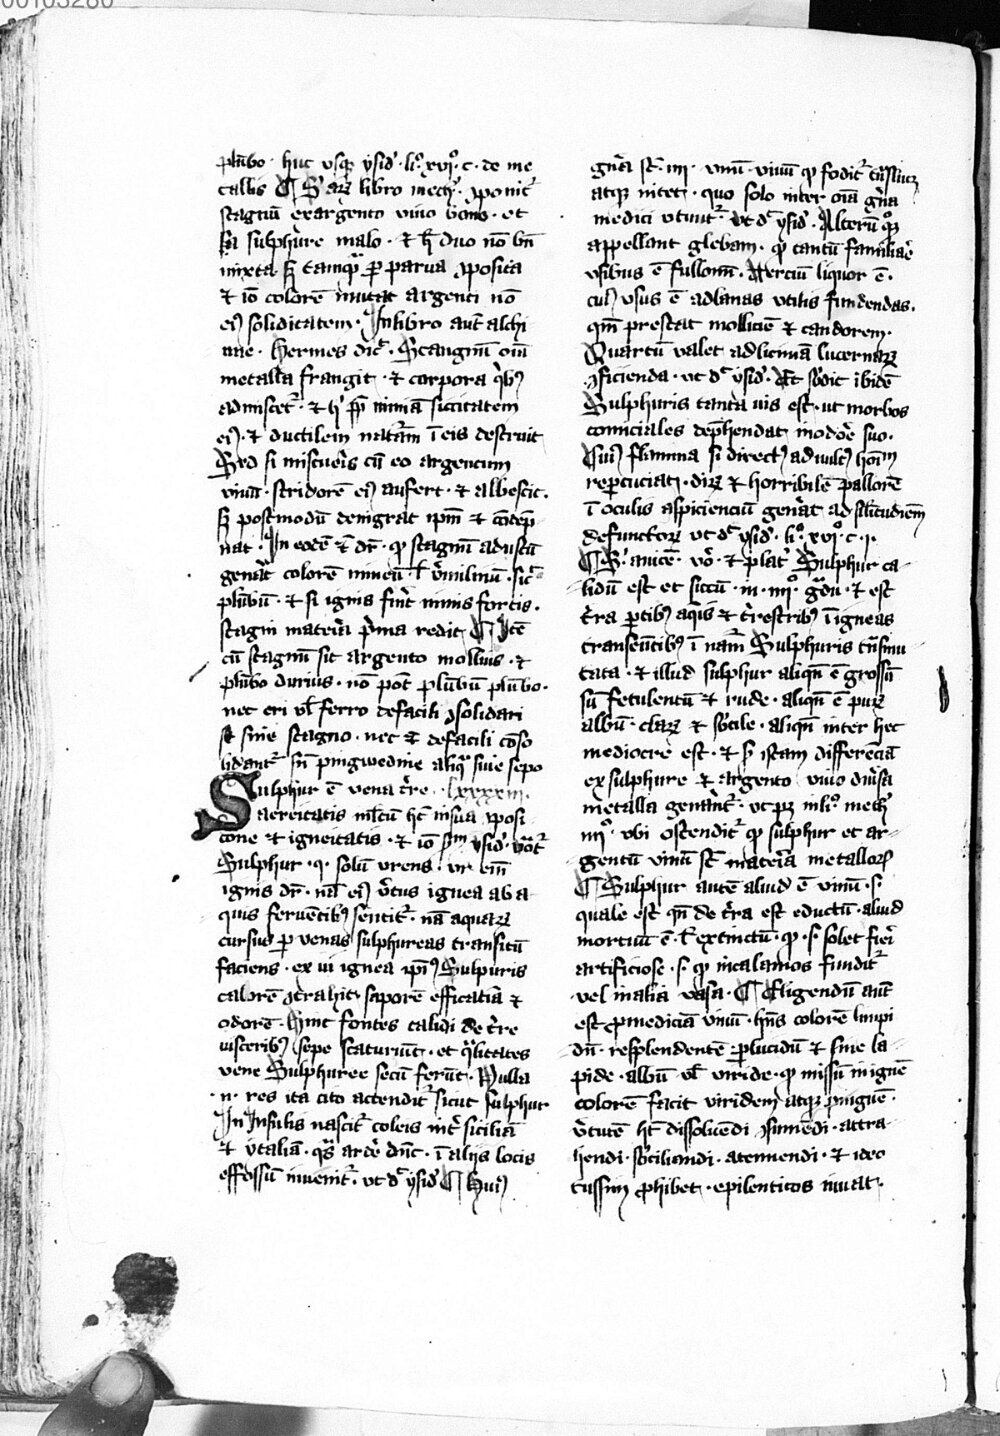 00103280
plūbo · huc vsqꝫ ysid̄ · li° · xvi° · c · de me
tallis ¶ S; aꝝ libro mech̄ · ꝯponit᷑
stagnū ex argento viuo bono · et
sulphure malo · ⁊ h̄ duo nō bn̄
mixta sꝫ tamqͣ ꝑ parua ꝯposita
⁊ iō colorē mutat argenti nō
eiꝰ soliditatem · In libro aut̄ alchi
mie · hermes dic̄ · Stangnū oīa
metalla frangit · ⁊ corpora qͥbꝰ
admiscet᷑ · ⁊ h̄ ꝓpt̄ nimiā siccitatem
eiꝰ · ⁊ ductilem nat᷑am ī eis destruit
Sed si miscueris cū eo argentum
viuū · stridorē eiꝰ aufert · ⁊ albescit ·
sꝫ postmodū denigrat ip̄m ⁊
nat · In eodē ⁊ dr̄ · qꝫ stagnū adustū
gen̄at colorē mineū · l̄ v̄milium · sic̄
plūbū · ⁊ si ignis fūit nimis fortis ·
stagni materia p̄ma redit ¶ Itē
cū stagnū sit argento mollius · ⁊
plūbo durius · nō pōt plūbū plūbo ·
nec eri vl̄ ferro defacili ꝯsolidari
sꝫ sine stagno · nec ⁊ defacili cōso
lidant᷑ sīn pingwedine aliqͣ siue sepo
Sulphur ē vena t̄re · lxxxxiii ·
aereitatis ml̄tū ht̄ in sua ꝯposi
cōne ⁊ igneitatis · ⁊ iō sm̄ ysid̄ · vōt᷑
Sulphur · q · solū vrens · vr em̄
ignis dr̄ · nā eiꝰ v̄tus ignea ab a
quis feruentibꝰ sentit᷑ · nā aquaꝝ
cursus ꝑ venas sulphureas transitū
faciens · ex ui ignea ip̄iꝰ Sulpuris
calorē ꝯtrahit saporē efficatiā ⁊
odorē · hinc fontes calidi de t̄re
visceribꝰ sepe scaturiūt · et qͣlitates
vene Sulphuree secū ferūt · Nulla
· n · res ita cito accendit᷑ sicut sulphur
In Insulis nascit᷑ coleis int̄ siciliā
⁊ ytaliā · qͣs ardē dn̄t · ī alijs locis
effossū inuenit᷑ · vt dͬ ysid̄ ¶ huiꝰ
gn̄a sūt · iiii · vnū · viuū qꝫ fodit᷑
atqꝫ nitet · quo solo inter oīa gn̄a
medici vtunt᷑ · vt dͬ ysid̄ · Alterū qꝫ
appellant glebam · qꝫ tantū familiare
vsibus ē fullonū · Tercium liquor ē ·
cuiꝰ vsus ē ad lanas vtilis fundendas ·
qm̄ prestat molliciē ⁊ candorem ·
Quartū valet ad licinia lucernaꝝ
ꝯficienda · vt dͬ ysid̄ · Et s̄dic ibidē
Sulphuris tanta uis est · ut morbos
comiciales dep̄hendat in odore suo ·
Cuiꝰ flamma si directꝰ ad vultꝰ hom̄
repcuciat · diꝝ ⁊ horribilē pallorē
ī oculis aspicienciū gen̄at ad sil̄itudiēm
defunctoꝝ vt dͬ ysid̄ · li° · xvi° · c · i ·
¶ S; auicē · vō · ⁊ plat̄ Sulphur ca
lidū est et siccū · in · iiii° · gͣdu · ⁊ est
t̄ra ꝑtibꝰ aqͥs ⁊ t̄restribꝰ ī igneas
transeūtibꝰ ī nam̄ Sulphuris
tata · ⁊ illud sulphur aliqn̄ ē grossū
fetulentū ⁊ rude · aliqn̄ ē puꝝ
albū · claꝝ ⁊ sb̄tile · aliqn̄ inter hec
mediocre est · ⁊ sm̄ istam differēciā
ex sulphure ⁊ argento viuo diūsa
metalla gen̄ant᷑ · vt pꝫ in li° · mech̄
iiii° · vbi ostendit᷑ qꝫ sulphur et ar
gentū viuū sūt materia metalloꝝ
¶ Sulphur autē aliud ē viuū · s ·
quale est qn̄ de t̄ra est eductū · aliud
mortuū ē · l̄ extinctū · qꝫ · s · solet fieri
artificiose · s · qꝫ in calamos fundit᷑
vel in alia vasa · ¶ Eligendū aūt
est ꝓ mediciā viuū · hn̄s colorē limpi
dū · resplendentē · ꝑlucidū ⁊ sine la
pide · albū vl̄ viride · qꝫ missū in ignē
colorē facit viridem atqꝫ pinguē ·
v̄tutē ht̄ dissoluēdi ꝯsumēdi · attra
hendi · sb̄tiliandi · atenuendi · ⁊ ideo
tussim ꝓhibet · epilenticos iuuat ·